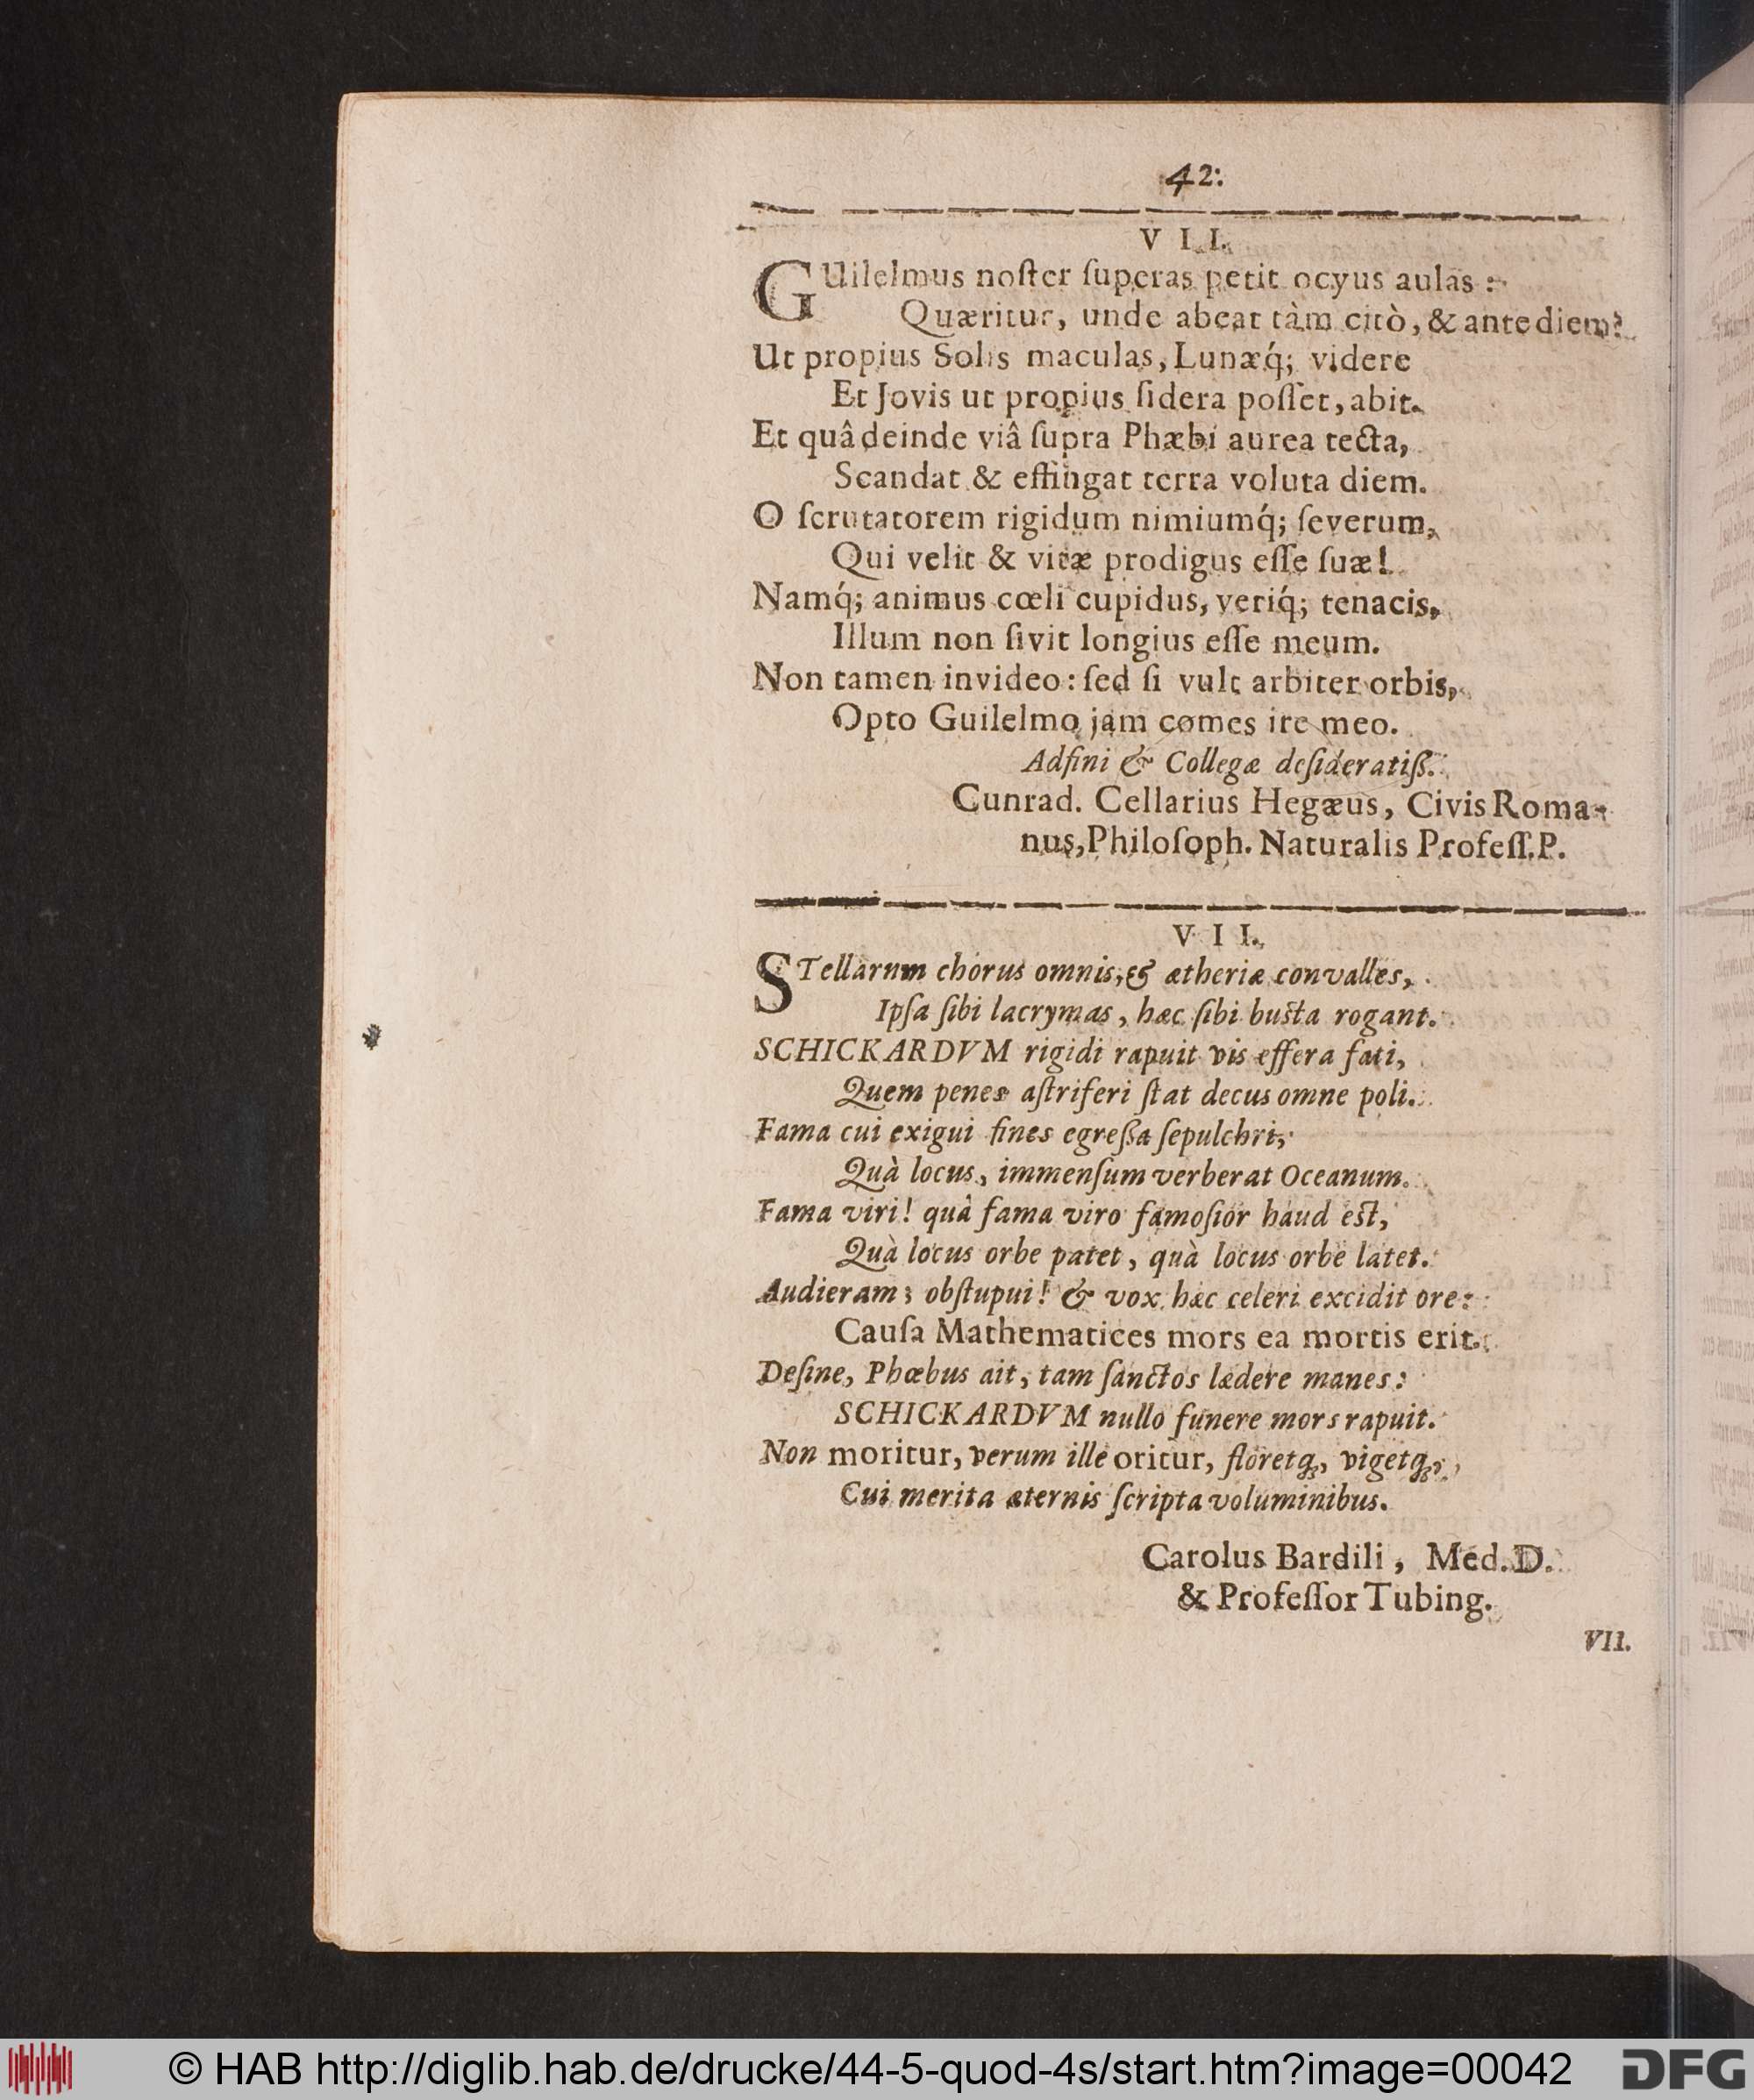 42:
V I I.
GUilelmus noſter ſuperas petit ocyus aulas :
Quæritur, unde abeat tàm citò, & ante diem?
Ut propius Solis maculas, Lunæq́; videre
Et Jovis ut propius ſidera poſſet, abit.
Et quâ deinde viâ ſupra Phæbi aurea tecta,
Scandat & effingat terra voluta diem.
O ſcrutatorem rigidum nimiumq́; ſeverum,
Qui velit & vitæ prodigus eſſe ſuæ!
Namq́; animus cœli cupidus, veriq́; tenacis,
Illum non ſivit longius eſſe meum.
Non tamen invideo: ſed ſi vult arbiter orbis,
Opto Guilelmo jam comes ire meo.
Adfini & Collegæ deſideratiß.
Cunrad. Cellarius Hegæus, Civis Roma-
nus, Philoſoph. Naturalis Profeſſ. P.
V I I.
STellarnm chorus omnis, & ætheriæ convalles,
Ipſa ſibi lacrymas, hæc ſibi buſta rogant.
SCHICKARDVM rigidi rapuit vis effera fati,
Quem penes aſtriferi ſtat decus omne poli.
Fama cui exigui fines egreßa ſepulchri,
Quà locus, immenſum verberat Oceanum.
Fama viri! quâ fama viro famoſior haud eſt,
Quà locus orbe patet, quà locus orbe latet.
Audieram; obſtupui! & vox hæc celeri excidit ore:
Cauſa Mathematices mors ea mortis erit.
Deſine, Phœbus ait, tam ſanctos lædere manes:
SCHICKARDVM nullo funere mors rapuit.
Non moritur, verum ille oritur, floretq́, vigetq́,
Cui merita æternis ſcripta voluminibus.
Carolus Bardili, Med. D.
& Profeſſor Tubing.
VII.
© HAB http://diglib.hab.de/drucke/44-5-quod-4s/start.htm?image=00042
DFG